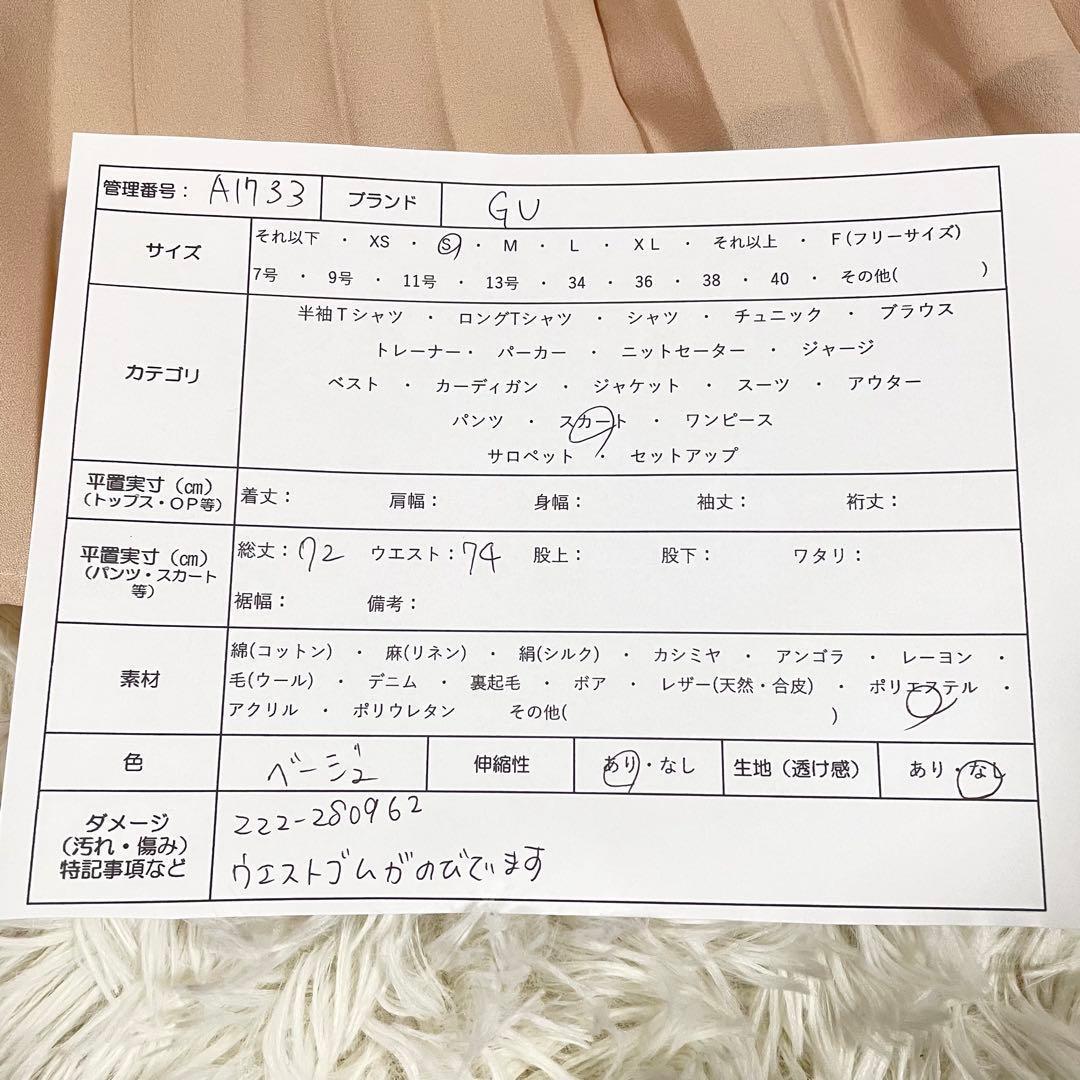 管理番号： A1733 ブランド GU
サイズ
それ以下 ・ XS ・ S ・ M ・ L ・ XL ・ それ以上 ・ F(フリーサイズ)
7号 ・ 9号 ・ 11号 ・ 13号 ・ 34 ・ 36 ・ 38 ・ 40 ・ その他( )
カテゴリ
半袖Tシャツ ・ ロングTシャツ ・ シャツ ・ チュニック ・ ブラウス
トレーナー・ パーカー ・ ニットセーター ・ ジャージ
ベスト ・ カーディガン ・ ジャケット ・ スーツ ・ アウター
パンツ ・ スカート ・ ワンピース
サロペット ・ セットアップ
平置実寸（㎝）
（トップス・OP等）
着丈： 肩幅： 身幅： 袖丈： 裄丈：
平置実寸（㎝）
（パンツ・スカート
等）
総丈：72 ウエスト：74 股上： 股下： ワタリ：
裾幅： 備考：
素材
綿(コットン) ・ 麻(リネン) ・ 絹(シルク) ・ カシミヤ ・ アンゴラ ・ レーヨン ・
毛(ウール) ・ デニム ・ 裏起毛 ・ ボア ・ レザー(天然・合皮) ・ ポリエステル ・
アクリル ・ ポリウレタン その他( )
色 ベージュ 伸縮性 あり・なし 生地（透け感） あり・なし
ダメージ
（汚れ・傷み）
特記事項など
222-280962
ウエストゴムがのびています